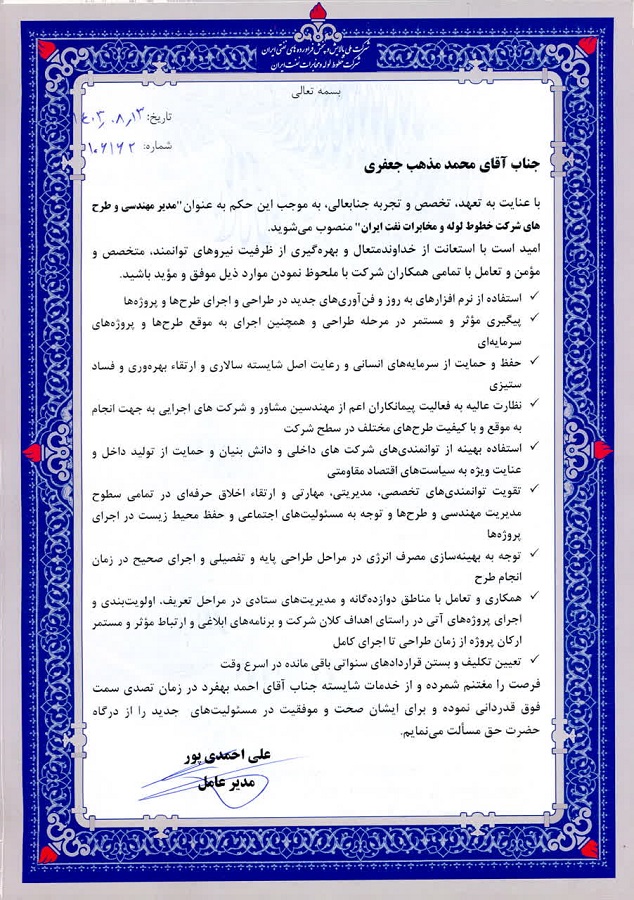 شرکت ملی پالایش و پخش فرآورده‌های نفتی ایران
شرکت خطوط لوله و مخابرات نفت ایران
بسمه تعالی
تاریخ: ۱۴۰۳٫۰۸٫۱۳
شماره: ۱۰۶۱۶۲
جناب آقای محمد مذهب جعفری
با عنایت به تعهد، تخصص و تجربه جنابعالی، به موجب این حکم به عنوان "مدیر مهندسی و طرح
های شرکت خطوط لوله و مخابرات نفت ایران" منصوب می‌شوید.
امید است با استعانت از خداوندمتعال و بهره‌گیری از ظرفیت نیروهای توانمند، متخصص و
مؤمن و تعامل با تمامی همکاران شرکت با ملحوظ نمودن موارد ذیل موفق و مؤید باشید.
✓ استفاده از نرم افزارهای به روز و فن‌آوری‌های جدید در طراحی و اجرای طرح‌ها و پروژه‌ها
✓ پیگیری مؤثر و مستمر در مرحله طراحی و همچنین اجرای به موقع طرح‌ها و پروژه‌های
سرمایه‌ای
✓ حفظ و حمایت از سرمایه‌های انسانی و رعایت اصل شایسته سالاری و ارتقاء بهره‌وری و فساد
ستیزی
✓ نظارت عالیه به فعالیت پیمانکاران اعم از مهندسین مشاور و شرکت های اجرایی به جهت انجام
به موقع و با کیفیت طرح‌های مختلف در سطح شرکت
✓ استفاده بهینه از توانمندی‌های شرکت های داخلی و دانش بنیان و حمایت از تولید داخل و
عنایت ویژه به سیاست‌های اقتصاد مقاومتی
✓ تقویت توانمندی‌های تخصصی، مدیریتی، مهارتی و ارتقاء اخلاق حرفه‌ای در تمامی سطوح
مدیریت مهندسی و طرح‌ها و توجه به مسئولیت‌های اجتماعی و حفظ محیط زیست در اجرای
پروژه‌ها
✓ توجه به بهینه‌سازی مصرف انرژی در مراحل طراحی پایه و تفصیلی و اجرای صحیح در زمان
انجام طرح
✓ همکاری و تعامل با مناطق دوازده‌گانه و مدیریت‌های ستادی در مراحل تعریف، اولویت‌بندی و
اجرای پروژه‌های آتی در راستای اهداف کلان شرکت و برنامه‌های ابلاغی و ارتباط مؤثر و مستمر
ارکان پروژه از زمان طراحی تا اجرای کامل
✓ تعیین تکلیف و بستن قراردادهای سنواتی باقی مانده در اسرع وقت
فرصت را مغتنم شمرده و از خدمات شایسته جناب آقای احمد بهفرد در زمان تصدی سمت
فوق قدردانی نموده و برای ایشان صحت و موفقیت در مسئولیت‌های جدید را از درگاه
حضرت حق مسألت می‌نمایم.
علی احمدی پور
مدیر عامل